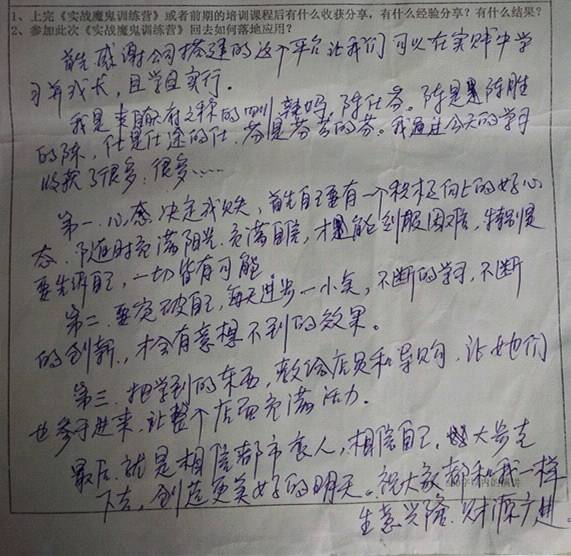 1、上完《实战魔鬼训练营》或者前期的培训课程后有什么收获分享？有什么经验分享？有什么结果？
2、参加此次《实战魔鬼训练营》回去如何落地应用？
首先感谢公司搭建的这个平台让我们可以在实践中学
习并成长，且学且实行。
我是来自天府之林的 辣妈，陈仕芬。陈是陈胜
的陈，仕是仕途的仕，芬是芬芳的芬。我通过今天的学习
收获了很多，很多……
第一，心态决定成败，首先自己要有一个积极向上的好心
态，随时充满阳光，充满自信，才能克服困难，
要先 自己，一切皆有可能
第二，要突破自己，每天进步一小点，不断的学习，不断
的创新，才会有意想不到的效果。
第三，把学到的东西，教给店员和导购，让她们
也参于进来，让整个店面充满活力。
最后，就是相信都市丽人，相信自己，大步走
下去，创造更美好的明天。祝大家都和我一样
生意兴隆，财源广进